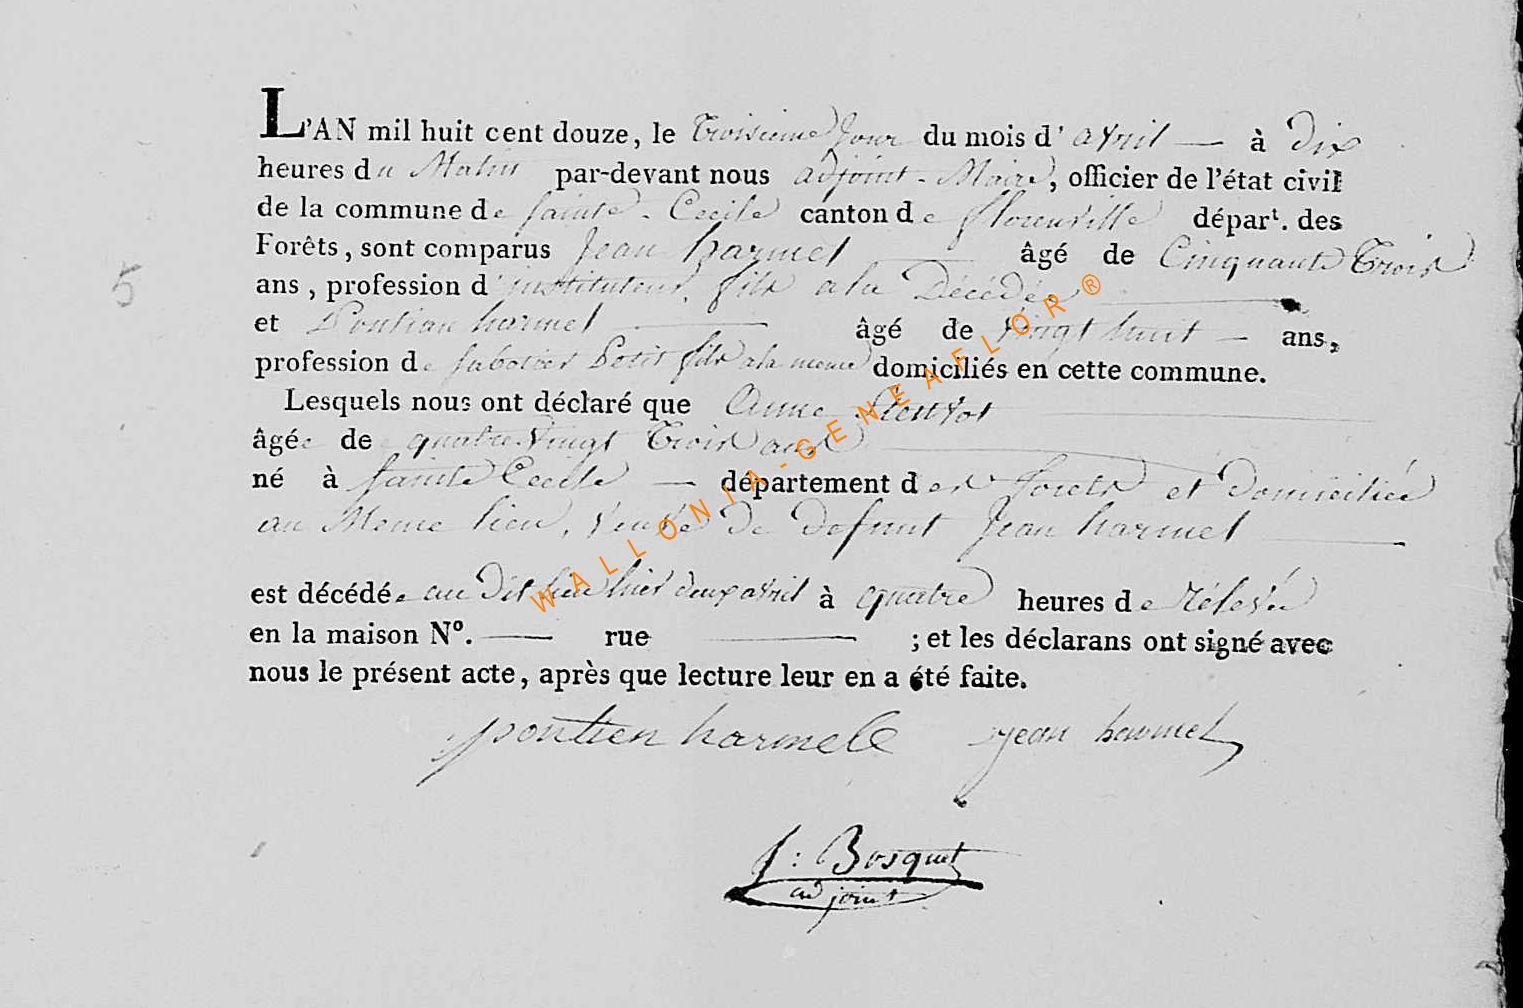 L'AN mil huit cent douze, le troisieme Jour du mois d'avril — à Dix
heures du Matin par-devant nous adjoint-Maire, officier de l'état civil
de la commune de sainte-Cecile canton de florenville départ. des
Forêts, sont comparus Jean harmel âgé de Cinquante Trois
ans, profession d'instituteur, fils a la Décédée
et Pontian harmel âgé de vingt huit — ans,
profession de sabotier Petit fils a la meme domiciliés en cette commune.
Lesquels nous ont déclaré que Anne
âgée de quatre vingt Trois ans
né à Sainte Cecile — département des forets et Domiciliée
au Meme lieu, veuve de defunt Jean harmel
est décédée au Dit lieu hier deux avril à quatre heures de relevée
en la maison Nº. — rue — ; et les déclarans ont signé avec
nous le présent acte, après que lecture leur en a été faite.
pontien harmel jean harmel
J: Bosquet
adjoint
5
WALLONIA-GENEAFLOR®